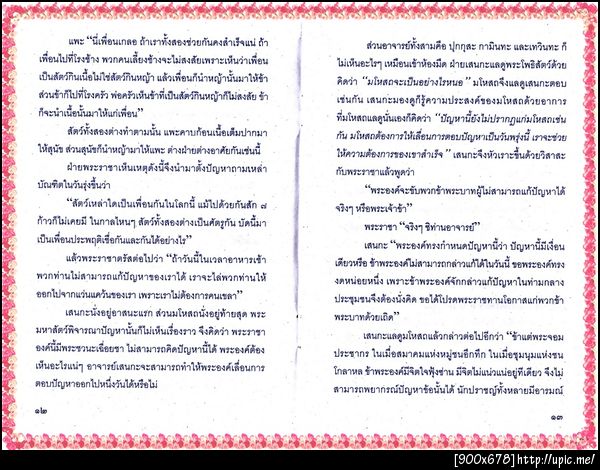 แพะ “นี่เพื่อนเกลอ ถ้าเราทั้งสองช่วยกันคงสำเร็จแน่ ถ้า
เพื่อนไปที่โรงช้าง พวกคนเลี้ยงช้างจะไม่สงสัยเพราะเห็นว่าเพื่อน
เป็นสัตว์กินเนื้อไม่ใช่สัตว์กินหญ้า แล้วเพื่อนก็นำหญ้านั้นมาให้ข้า
ส่วนข้าก็ไปที่โรงครัว พ่อครัวเห็นข้าที่เป็นสัตว์กินหญ้าก็ไม่สงสัย ข้า
ก็จะนำเนื้อนั้นมาให้แก่เพื่อน”
สัตว์ทั้งสองต่างทำตามนั้น แพะคาบก้อนเนื้อเต็มปากมา
ให้สุนัข ส่วนสุนัขก็นำหญ้ามาให้แพะ ต่างฝ่ายต่างอาศัยกันเช่นนี้
ฝ่ายพระราชาเห็นเหตุดังนี้จึงนำมาตั้งปัญหาถามเหล่า
บัณฑิตในวันรุ่งขึ้นว่า
“สัตว์เหล่าใดเป็นเพื่อนกันในโลกนี้ แม้ไปด้วยกันสัก ๗
ก้าวก็ไม่เคยมี ในกาลไหนๆ สัตว์ทั้งสองต่างเป็นศัตรูกัน บัดนี้มา
เป็นเพื่อนประพฤติเชื่อกันและกันได้อย่างไร”
แล้วพระราชาตรัสต่อไปว่า “ถ้าวันนี้ในเวลาอาหารเช้า
พวกท่านไม่สามารถแก้ปัญหาของเราได้ เราจะไล่พวกท่านให้
ออกไปจากแว่นแคว้นของเรา เพราะเราไม่ต้องการคนเขลา”
เสนกะนั่งอยู่อาสนะแรก ส่วนมโหสถนั่งอยู่ท้ายสุด พระ
มหาสัตว์พิจารณาปัญหานั้นก็ไม่เห็นเรื่องราว จึงคิดว่า พระราชา
องค์นี้มีพระชวนะเฉื่อยชา ไม่สามารถคิดปัญหานี้ได้ พระองค์ต้อง
เห็นอะไรแน่ๆ อาจารย์เสนกะจะสามารถทำให้พระองค์เลื่อนการ
ตอบปัญหาออกไปหนึ่งวันได้หรือไม่
๑๒
ส่วนอาจารย์ทั้งสามคือ ปุกกุสะ กามินทะ และเทวินทะ ก็
ไม่เห็นอะไรๆ เหมือนเข้าห้องมืด ฝ่ายเสนกะแลดูพระโพธิสัตว์ด้วย
คิดว่า “มโหสถจะเป็นอย่างไรหนอ” มโหสถจึงแลดูเสนกะตอบ
เช่นกัน เสนกะมองดูก็รู้ความประสงค์ของมโหสถด้วยอาการ
ที่มโหสถแลดูนั่นเองก็คิดว่า “ปัญหานี้ยังไม่ปรากฏแก่มโหสถเช่น
กัน มโหสถต้องการให้เลื่อนการตอบปัญหาเป็นวันพรุ่งนี้ เราจะช่วย
ให้ความต้องการของเขาสำเร็จ” เสนกะจึงหัวเราะขึ้นด้วยวิสาสะ
กับพระราชาแล้วพูดว่า
“พระองค์จะขับพวกข้าพระบาทผู้ไม่สามารถแก้ปัญหาได้
จริงๆ หรือพระเจ้าข้า”
พระราชา “จริงๆ ซิท่านอาจารย์”
เสนกะ “พระองค์ทรงกำหนดปัญหานี้ว่า ปัญหานี้มีเงื่อน
เดียวหรือ ข้าพระองค์ไม่สามารถกล่าวแก้ได้ในวันนี้ ขอพระองค์ทรง
งดหน่อยหนึ่ง เพราะข้าพระองค์จักกล่าวแก้ปัญหาในท่ามกลาง
ประชุมชนจึงต้องนั่งคิด ขอได้โปรดพระราชทานโอกาสแก่พวกข้า
พระบาทด้วยเถิด”
เสนกะแลดูมโหสถแล้วกล่าวต่อไปอีกว่า “ข้าแต่พระจอม
ประชากร ในเมื่อสมาคมแห่งหมู่ชนอึกทึก ในเมื่อชุมนุมแห่งชน
โกลาหล ข้าพระองค์มีจิตใจฟุ้งซ่าน มีจิตไม่แน่วแน่อยู่ทีเดียว จึงไม่
สามารถพยากรณ์ปัญหาข้อนั้นได้ นักปราชญ์ทั้งหลายมีอารมณ์
๑๓
[900x678]http://upic.me/